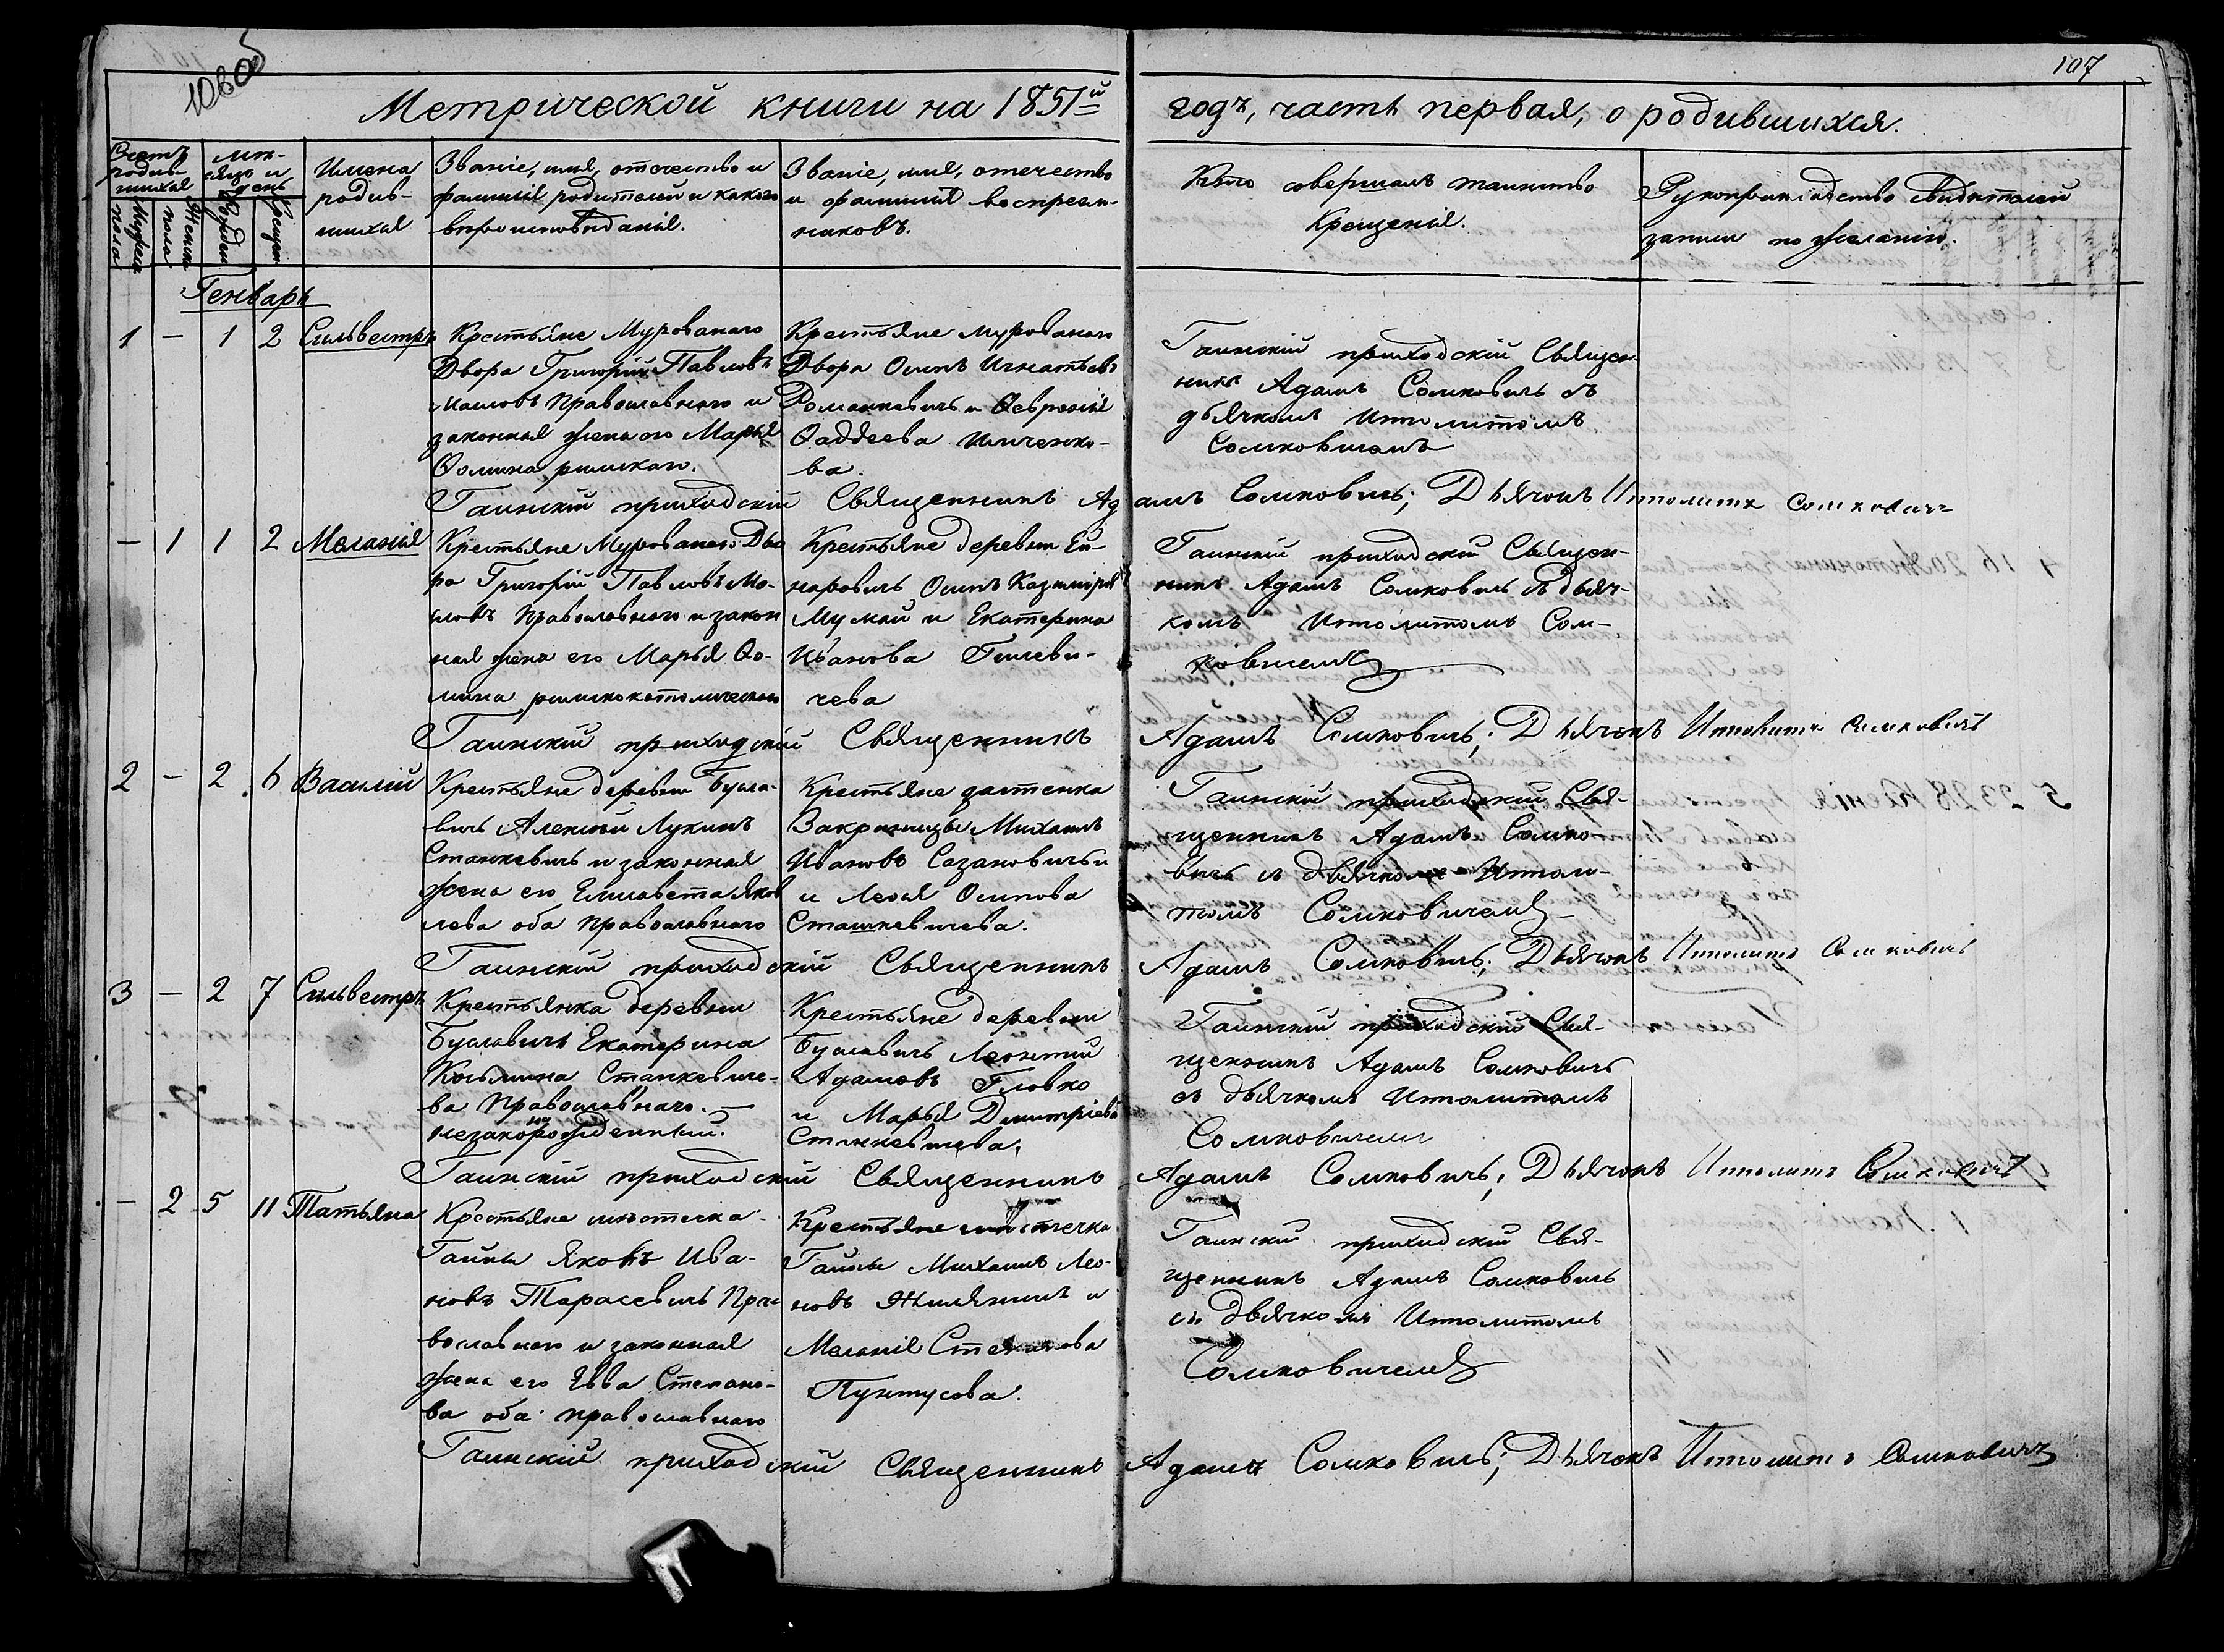 106об
107
Метрической книги на 1851й
годъ, часть первая, о родившихся.
Счетъ родившихся
Мѣсяцъ и день
Мужеска пола
Женска пола
Рожден
Крещен
Имена
родив-
шихся
Званіе, имя, отчество и
фамилія родителей и какого
вѣроисповѣданія.
Званіе, имя, отечество
и фамилія воспріем-
никовъ.
Кто совершалъ таинство
Крещенія.
Рукоприкладство свидѣтелей
записи по желанію.
Генварь
1 — 1 2 Сильвестръ
Крестьяне Мурованаго
Двора Григорій Павловъ
Православнаго и
законная жена его Марья
Ѳомина, римскаго.
Крестьяне мурованаго
Двора Осипъ Игнатьевъ
Романкевичъ и Ѳевронія
Ѳаддеева
ва.
Гаинскій приходскій Священ-
никъ Адамъ Сомковичъ съ
дьячкомъ Ипполитомъ
Сомковичемъ
Гаинскій приходскій Священникъ Адамъ Сомковичъ; Дьячокъ Ипполитъ Сомковичъ
— 1 1 2 Меланія
Крестьяне Мурованаго Дво
ра Григорій Павловъ
Православнаго и закон
ная жена его Марья Ѳо-
мина римскокатолическаго
Крестьяне деревни
Осипъ Казимировъ
и Екатерина
Иванова Гилеви-
чева
Гаинскій приходскій Священ-
никъ Адамъ Сомковичъ съ дьяч-
комъ Ипполитомъ Сом-
ковичемъ
Гаинскій приходскій Священникъ Адамъ Сомковичъ; Дьячокъ Ипполитъ Сомковичъ
2 — 2 6 Василій
Крестьяне деревни Бусла-
вичъ Алексѣй Лукинъ
Станкевичъ и законная
жена его Елисавета Яков
лева оба православнаго
Крестьяне застенка
Закриницы Михаилъ
Ивановъ Сазановичъ и
и Осипова
Сташкевичева.
Гаинскій приходскій Свя-
щенникъ Адамъ Сомко-
вичъ съ дьячкомъ Иппол-
томъ Сомковичемъ
Гаинскій приходскій Священникъ Адамъ Сомковичъ; Дьячокъ Ипполитъ Сомковичъ
3 — 2 7 Сильвестръ
Крестьянка деревни
Буславичъ Екатерина
Косьмина Станкевиче-
ва Православнаго. —
незаконорожденный.
Крестьяне деревни
Буславичъ Леонтій
Адамовъ Гловко
и Марья Дмитріева
Станкевичева.
Гаинскій приходскій Свя-
щенникъ Адамъ Сомковичъ
съ дьячкомъ Ипполитомъ
Сомковичемъ
Гаинскій приходскій Священникъ Адамъ Сомковичъ; Дьячокъ Ипполитъ Сомковичъ
— 2 5 11 Татьяна
Крестьяне мѣстечка
Гайны Яковъ Ива-
новъ Тарасевичъ Пра-
вославнаго и законная
жена его Евва Степано-
ва оба православнаго
Крестьяне мѣстечка
Гайны Михаилъ Лео-
новъ и
Меланія Степанова
Пунтусова.
Гаинскій приходскій Свя-
щенникъ Адамъ Сомковичъ
съ Дьячкомъ Ипполитомъ
Сомковичемъ
Гаинскій приходскій Священникъ Адамъ Сомковичъ; Дьячокъ Ипполитъ Сомковичъ